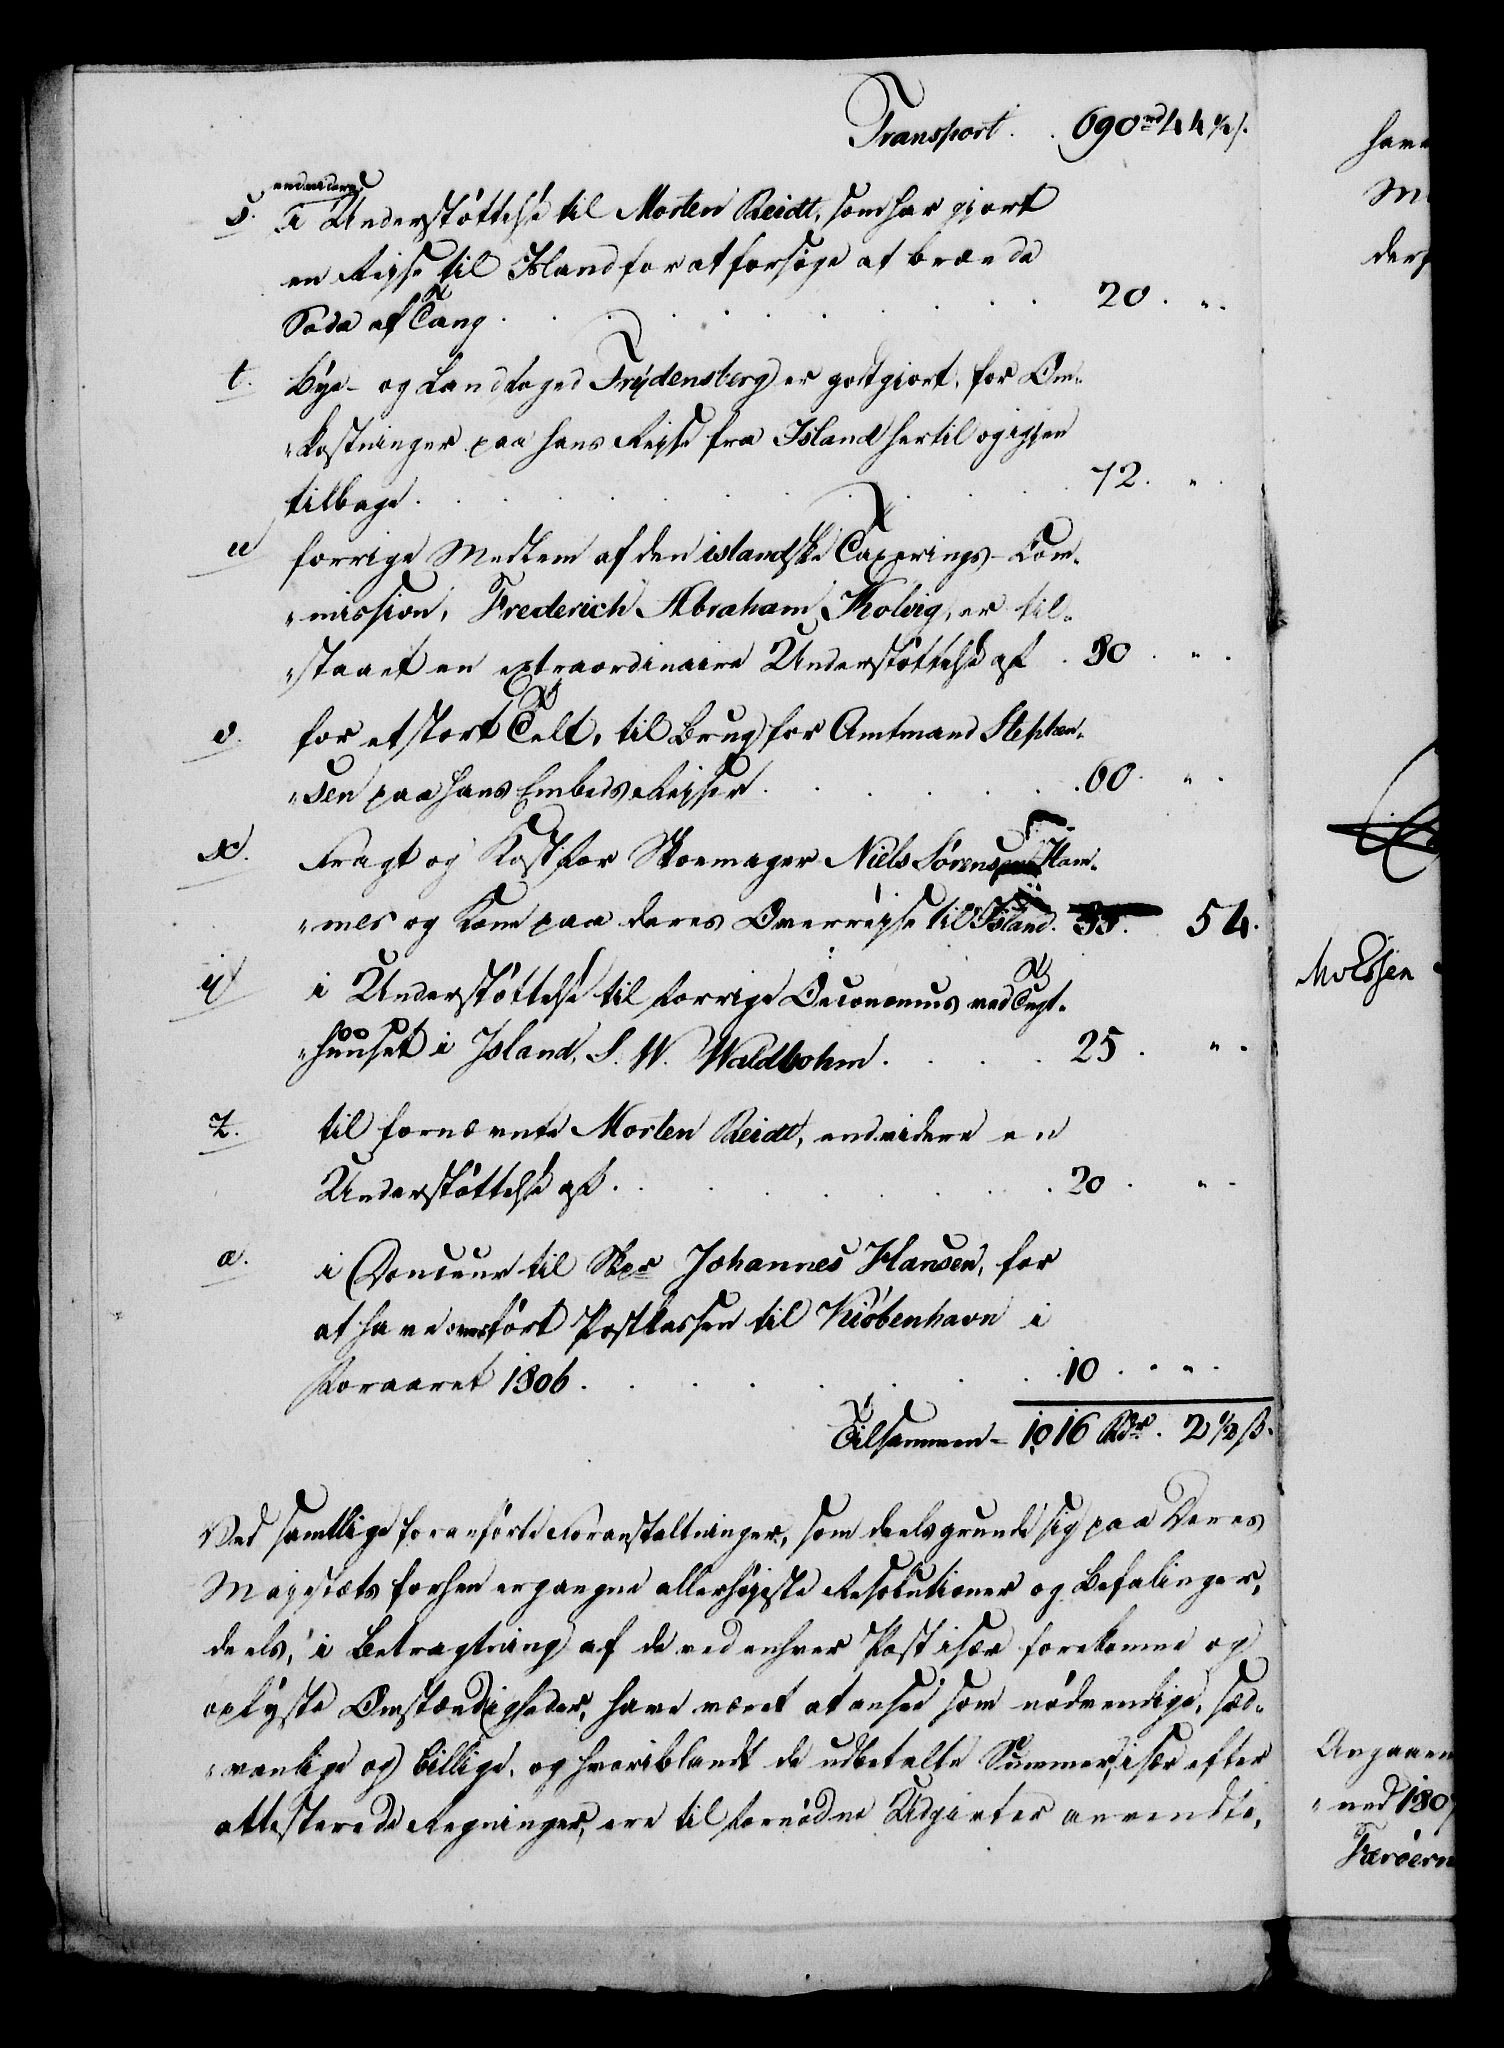 Transport . . 690 rd 44 ½ s.
endvidere
s. i Understøttelse til Morten Reidt, som har gjort
en Rejse til Island for at forsøge at brænde
Soda af Tang . . . . . . . 20 . „ .
t. Bye- og Landfoged Frydensberg er godtgiort, for Om-
„kostninger paa hans Rejse fra Island hertil og igjen
tilbage . . . . . . . 72 . „ .
u forrige Medlem af den islandske Taxerings-Com-
„mission, Frederich Abraham Kolvig, er til-
„staaet en extraordinaire Understøttelse af . 80 . „ .
v. for et stort Telt, til Brug for Amtmand Stephen-
„sen paa hans Embeds Rejser . . . . . 60 . „ .
x. Fragt og Kost for Skoemager Niels Sørensen Ham-
„mer og Kone paa deres Overrejse til Island . 38 . 54 .
y i Understøttelse til forrige Oeconomus ved Tugt-
„huuset i Island, S. W. Waldbohm . . . . 25 . „ .
z. til fornævnte Morten Reidt, endvidere en
Understøttelse af . . . . . . 20 . „ .
a. i Douceur til Skpr Johannes Hansen, for
at have overført Postkassen til Kiøbenhavn i
Foraaret 1806 . . . . . . 10 . „ .
Tilsammen - 1016 Rdr . 2 ½ ß.
Ved samtlige foranførte Foranstaltninger, som deels grunde sig paa Deres
Majestæts forhen ergangne allerhøjeste Resolutioner og Befalinger,
deels, i Betragtning af de ved enhver Post især forekomne og
oplyste Omstændigheder, have været at ansee som nødvendige, sæd-
„vanlige og billige, og hvoriblandt de udbetalte Summer, især efter
attesterede Regninger, ere til fornødne Udgivter anvendte,
have
M
der
Angaaen
„ned 180
Færöern